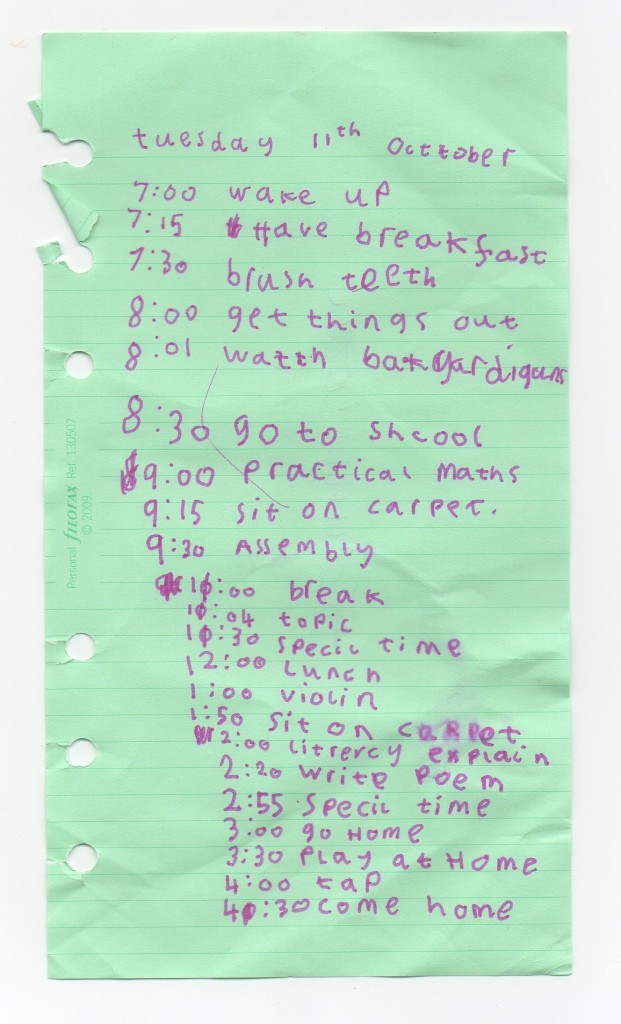 tuesday 11th octtober
7:00 wake up
7:15 Have breakfast
7:30 brush teeth
8:00 get things out
8:01 watth bakyardigans
8:30 go to shcool
9:00 practical maths
9:15 sit on carpet.
9:30 Assembly
10:00 break
10:04 topic
10:30 specil time
12:00 Lunch
1:00 violin
1:50 sit on carpet
2:00 litrercy explain
2:20 write poem
2:55 specil time
3:00 go Home
3:30 Play at Home
4:00 tap
4:30 come home
Personal filofax Ref. 130507
© 2009